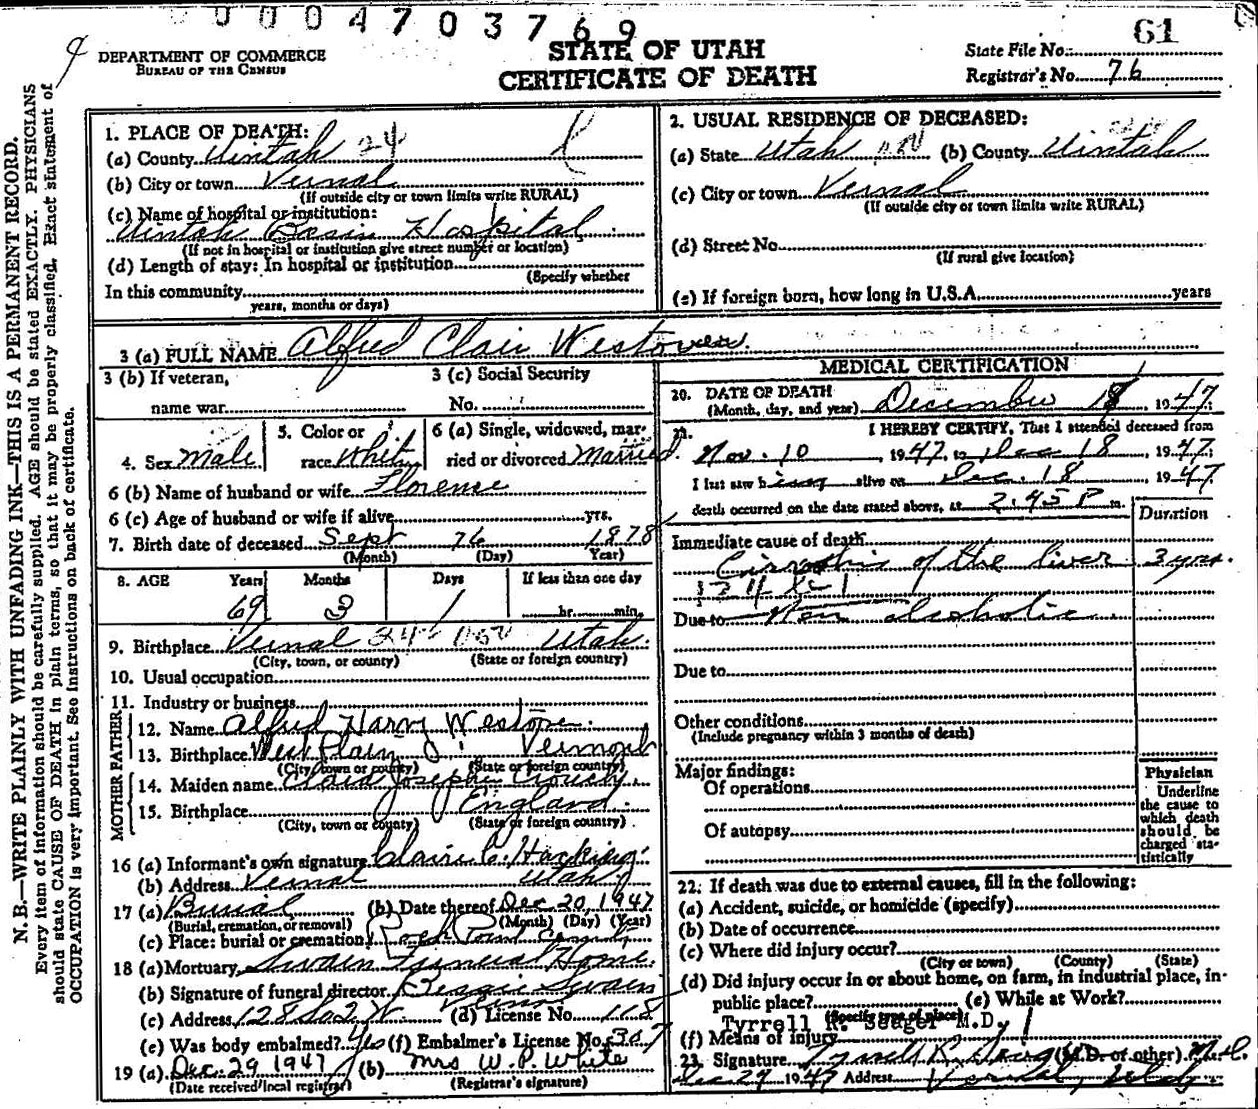 0004703769
61
DEPARTMENT OF COMMERCE
BUREAU OF THE CENSUS
STATE OF UTAH
CERTIFICATE OF DEATH
State File No.
Registrar's No. 76
N. B.—WRITE PLAINLY WITH UNFADING INK—THIS IS A PERMANENT RECORD.
Every item of information should be carefully supplied. AGE should be stated EXACTLY. PHYSICIANS
should state CAUSE OF DEATH in plain terms, so that it may be properly classified. Exact statement of
OCCUPATION is very important. See instructions on back of certificate.
1. PLACE OF DEATH:
(a) County Uintah 24
(b) City or town Vernal
(If outside city or town limits write RURAL)
(c) Name of hospital or institution:
Uintah Basin Hospital
(If not in hospital or institution give street number or location)
(d) Length of stay: In hospital or institution
(Specify whether
In this community
years, months or days)
2. USUAL RESIDENCE OF DECEASED:
(a) State Utah (b) County Uintah
(c) City or town Vernal
(If outside city or town limits write RURAL)
(d) Street No.
(If rural give location)
(e) If foreign born, how long in U.S.A. years
3 (a) FULL NAME Alfred Clair Westover
3 (b) If veteran,
name war
3 (c) Social Security
No.
4. Sex Male
5. Color or
race White
6 (a) Single, widowed, mar-
ried or divorced Married
6 (b) Name of husband or wife Florence
6 (c) Age of husband or wife if alive yrs.
7. Birth date of deceased Sept 1878
(Month) (Day) (Year)
8. AGE Years Months Days If less than one day
69 3 1 hr. min.
9. Birthplace Vernal Utah
(City, town, or county) (State or foreign country)
10. Usual occupation
11. Industry or business
FATHER
12. Name Alfred Harvy Westover
13. Birthplace West Plain Vermont
(City, town or county) (State or foreign country)
MOTHER
14. Maiden name Clara Josephine Crouch
15. Birthplace England
(City, town or county) (State or foreign country)
16 (a) Informant's own signature Claire C. Hacking
(b) Address Vernal Utah
17 (a) Burial (b) Date thereof Dec 20, 1947
(Burial, cremation, or removal) (Month) (Day) (Year)
(c) Place: burial or cremation Rock Point
18 (a) Mortuary Swain Funeral Home
(b) Signature of funeral director Bessie Swain
(c) Address 128 So 2 W. Vernal (d) License No. 118
(e) Was body embalmed? Yes (f) Embalmer's License No. 307
19 (a) Dec 29 1947 (b) Mrs W. P. White
(Date received local registrar) (Registrar's signature)
MEDICAL CERTIFICATION
20. DATE OF DEATH
(Month, day, and year) December 18, 1947
21. I HEREBY CERTIFY, That I attended deceased from
Nov. 10, 1947, to Dec 18, 1947
I last saw him alive on Dec. 18 1947
death occurred on the date stated above, at 2:45 P m.
Duration
Immediate cause of death
Cirrhosis of the liver 3 yrs.
Due to Non alcoholic
Due to
Other conditions
(Include pregnancy within 3 months of death)
Major findings:
Of operations
Of autopsy
Physician
Underline
the cause to
which death
should be
charged sta-
tistically
22. If death was due to external causes, fill in the following:
(a) Accident, suicide, or homicide (specify)
(b) Date of occurrence
(c) Where did injury occur?
(City or town) (County) (State)
(d) Did injury occur in or about home, on farm, in industrial place, in-
public place? (e) While at Work?
(Specify type of place)
Tyrrell R. Seager M.D.
(f) Means of injury
23. Signature Tyrrell R. Seager (M.D. or other) M.D.
Dec 29 1947 Address Vernal, Utah